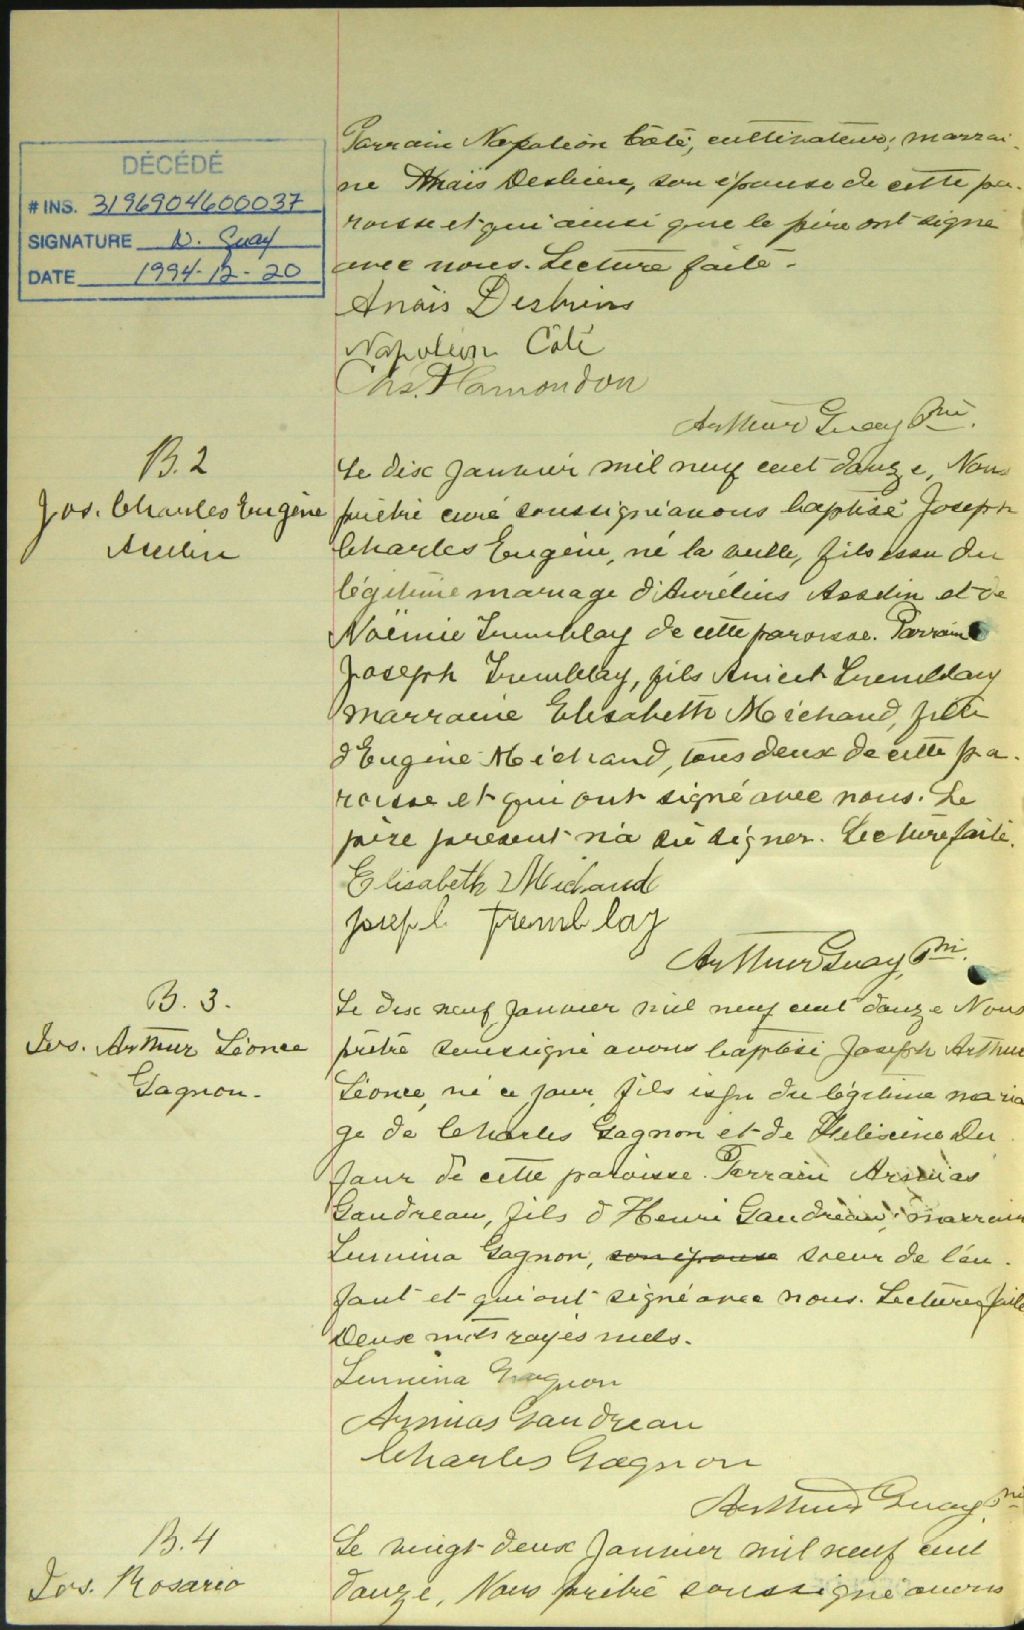 DÉCÉDÉ
# INS. 3196904600037
SIGNATURE N. Guay
DATE 1994-12-20
Parrain Napoléon Côté, cultivateur; marrai-
ne Anaïs Desbiens, son épouse de cette pa-
roisse et qui ainsi que le père ont signé
avec nous. Lecture faite.
Anaïs Desbiens
Napoléon Côté
Chs. Plamondon
Arthur Guay Ptre.
B. 2
Jos. Charles Eugène
Asselin
Le dix janvier mil neuf cent douze, Nous
prêtre curé soussigné avons baptisé Joseph
Charles Eugène, né la veille, fils issu du
légitime mariage d'Aurélius Asselin et de
Noëmie Tremblay de cette paroisse. Parrain
Joseph Tremblay, fils Anicet Tremblay
marraine Elisabeth Michaud, fille
d'Eugène Michaud, tous deux de cette pa-
roisse et qui ont signé avec nous. Le
père présent n'a su signer. Lecture faite.
Elisabeth Michaud
Joseph Tremblay
Arthur Guay, Ptre.
B. 3.
Jos. Arthur Léonce
Gagnon.
Le dix neuf janvier mil neuf cent douze Nous
prêtre soussigné avons baptisé Joseph Arthur
Léonce, né ce jour, fils issu du légitime maria
ge de Charles Gagnon et de Du
four de cette paroisse. Parrain Arsenias
Gaudreau, fils d'Henri Gaudreau, marraine
Lumina Gagnon, son épouse soeur de l'en-
fant et qui ont signé avec nous. Lecture faite
Deux mots rayés nuls.
Lumina Gagnon
Gaudreau
Charles Gagnon
Arthur Guay Ptre
B. 4
Jos. Rosario
Le vingt deux janvier mil neuf cent
douze, Nous prêtre soussigné avons